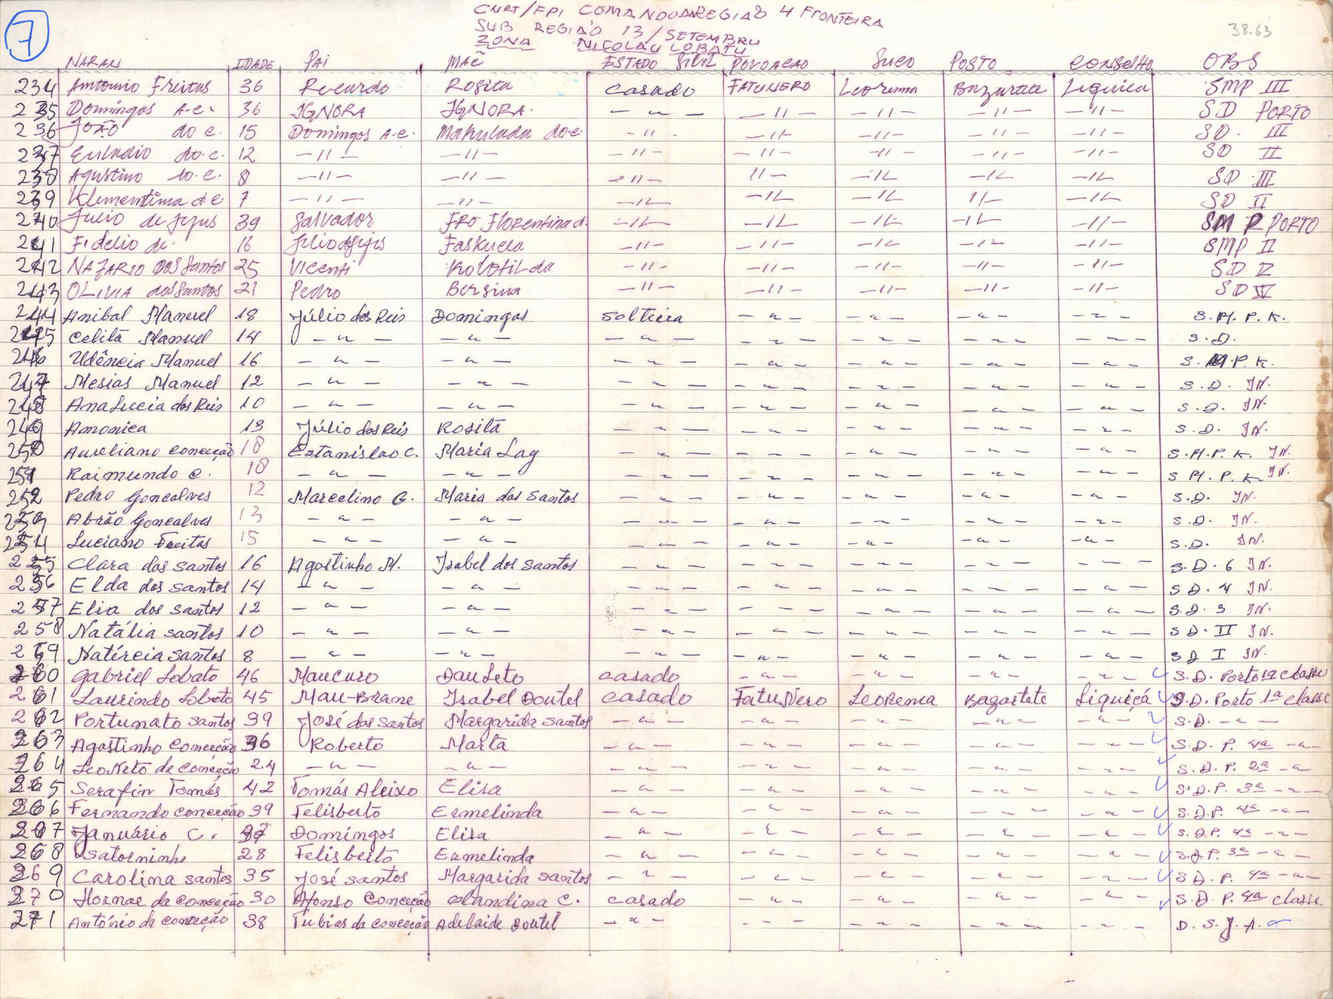 7
CNRT/FPI COMANDO DA REGIÃO 4 FRONTEIRA
38.63
SUB REGIÃO 13/SETEMBRU
ZONA NICOLAU LOBATU
NARAN IDADE PAI MAÊ ESTADO SIVIL POVOACAO SUCO POSTO CONSELHO OBS
234 Antonio Freitas 36 Ricardo Rosita casado FATUNERO Leorema Bazartca Liquica SMP III
235 Domingos A.c. 36 IGNORA IGNORA. — — — —11— —11— —11— —11— SD PORTO
236 JOÃO do c. 15 Domingos A.c. Mahulada do c. —11— —11— —11— —11— —11— SD. III
237 do c. 12 —11— —11— —11— —11— —11— —11— —11— SD II
238 Agustino do c. 8 —11— —11— —11— —11— —11— —11— —11— SD III
239 Klementima de c 7 —11— —11— —11— —11— —11— 11— —11— SD II
240 Julio de Jejus 39 Salvador FRO Florentina d. —11— —11— —11— —11— —11— SM P PORTO
241 Fidelio de. 16 Faskuela —11— —11— —11— —11— —11— SMP II
242 NAZARIO DOS Santos 25 Vicenti Kolotilda —11— —11— —11— —11— —11— SD V
243 OLIVIA dos Santos 21 Pedro Bersina —11— —11— —11— —11— —11— SD IV
244 Anibal Manuel 18 Júlio dos Reis Domingas solteira — " — — " — — " — — " — S.M.P.K.
245 Celita Manuel 14 — " — — " — — " — — " — — " — — " — — " — S.D.
246 Manuel 16 — " — — " — — " — — " — — " — — " — — " — S.M.P.K.
247 Mesias Manuel 12 — " — — " — — " — — " — — " — — " — — " — S.D. IN.
248 Ana Lucia dos Reis 10 — " — — " — — " — — " — — " — — " — — " — S.D. IN.
249 Amonica 13 Júlio dos Reis Rosita — " — — " — — " — — " — — " — S.D. IN.
250 Aureliano conceição 18 Estanislao C. Maria Lay — " — — " — — " — — " — — " — S.M.P.K. IN.
251 Raimundo C. 18 — " — — " — — " — — " — — " — — " — — " — S.M.P.K. IN.
252 Pedro Goncalves 12 Marcelino G. Maria dos Santos — " — — " — — " — — " — — " — S.D. IN.
253 Abrão Goncalves 13 — " — — " — — " — — " — — " — — " — — " — S.D. IN.
254 Luciano Freitas 15 — " — — " — — " — — " — — " — — " — — " — S.D. IN.
255 Clara dos Santos 16 Agostinho M. Isabel dos santos — " — — " — — " — — " — — " — S.D. 6 IN.
256 Elda dos santos 14 — " — — " — — " — — " — — " — — " — — " — S.D. 4 IN.
257 Elia dos santos 12 — " — — " — — " — — " — — " — — " — — " — S.D. 3 IN.
258 Natália santos 10 — " — — " — — " — — " — — " — — " — — " — S.D. II IN.
259 Natírcia santos 8 — " — — " — — " — — " — — " — — " — — " — S.D I IN.
260 Gabriel Lobato 46 Maucuro Dau Leto casado — " — — " — — " — — " — S.D. Porto 1ª classe
261 Laurindo Lobato 45 Mau-Brane Isabel Doutel casado FatuNero Leorema Bagartete Liquiçá S.D. Porto 1ª classe
262 Fortunato santos 39 José dos santos Margarida santos — " — — " — — " — — " — — " — S.D. — " —
263 Agostinho conceicão 36 Roberto Marta — " — — " — — " — — " — — " — S.D. P. 4ª — " —
264 LeoNeto de conceição 24 — " — — " — — " — — " — — " — — " — — " — S.D.P. 2ª — " —
265 Serafin Tomás 42 Tomás Aleixo Elisa — " — — " — — " — — " — — " — S.D.P. 3ª — " —
266 Fernando conceição 39 Felisberto Ermelinda — " — — " — — " — — " — — " — S.D.P. 4ª — " —
267 Januário C. Domingos Elisa — " — — " — — " — — " — — " — S.D.P. 4ª — " —
268 satorninho 28 Felisberto Ermelinda — " — — " — — " — — " — — " — S.D.P. 3ª — " —
269 Carolina santos 35 José santos Margarida santos — " — — " — — " — — " — — " — S.D. P. 4ª — " —
270 da conceição 30 Afonso Conceição C. casado — " — — " — — " — — " — S.D. P. 4ª classe
271 António da conceição 38 Tubias da conceição Adelaide Doutel — " — — " — — " — — " — — " — D.S.J.A.